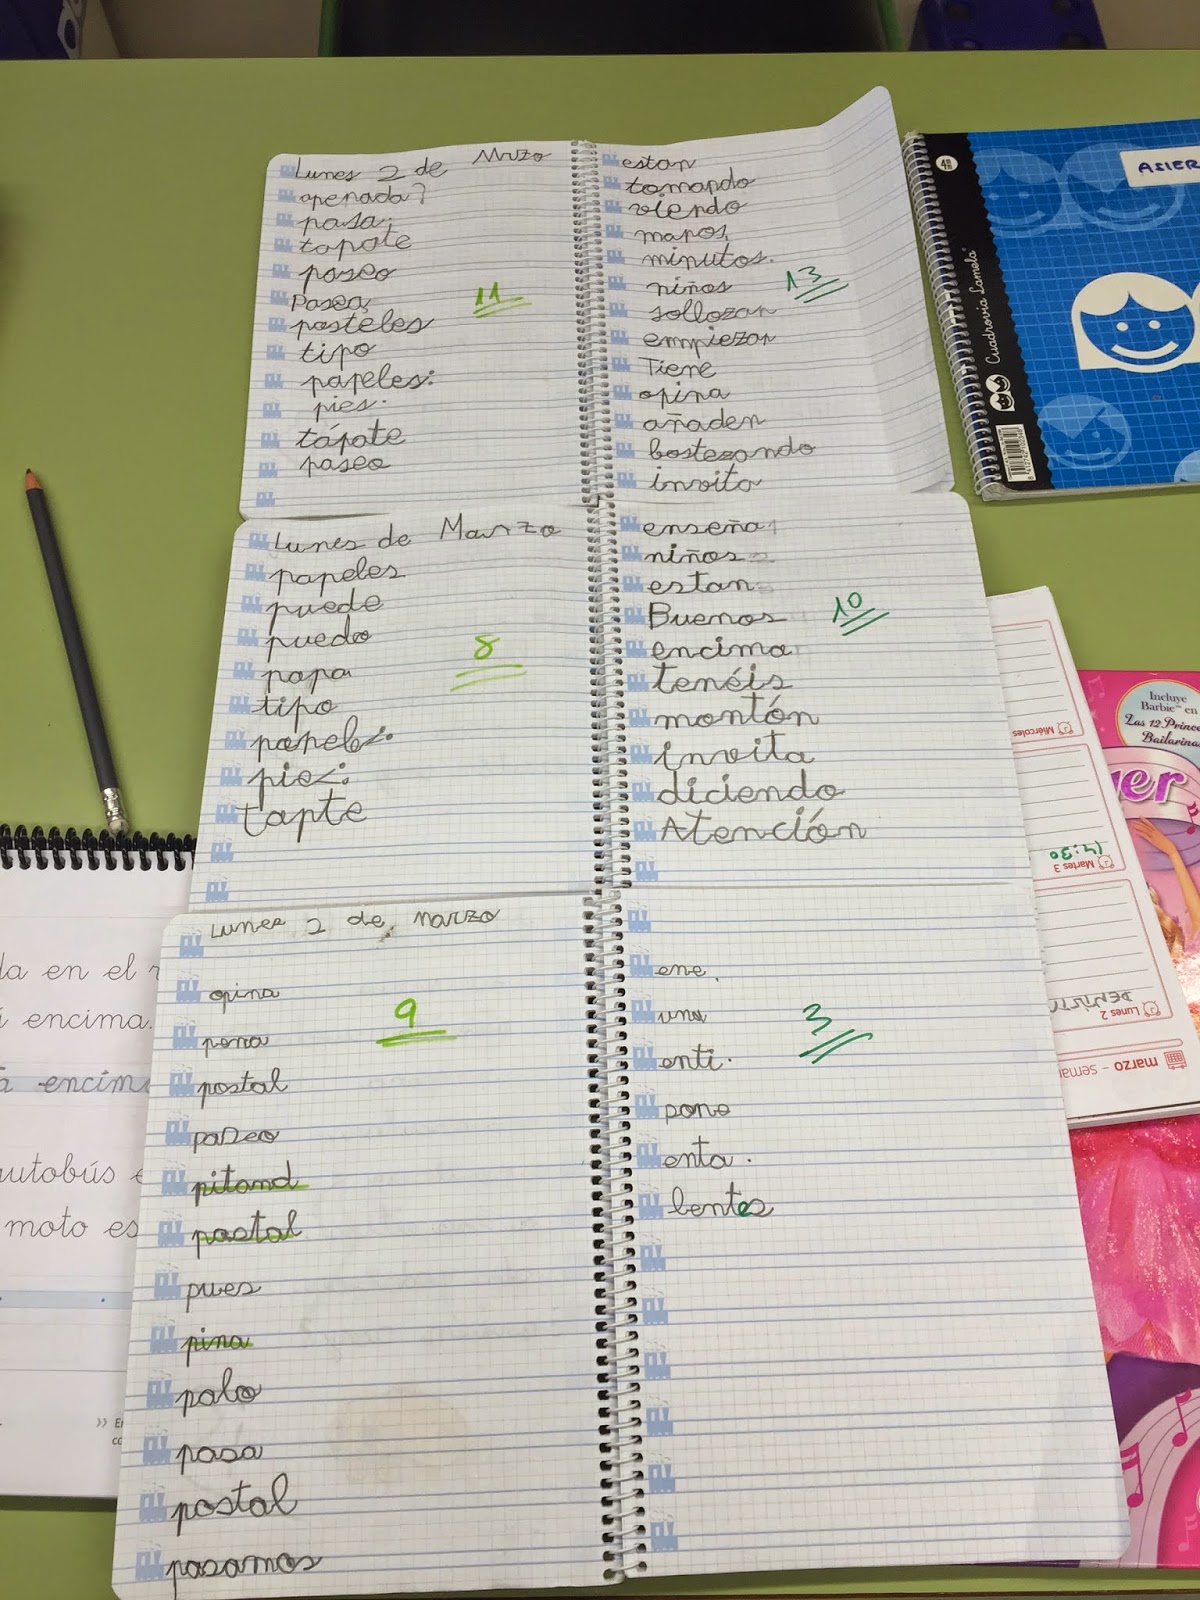 Lunes 2 de Marzo
apenada?
pasa.
tapate
paseo
Pasea
pasteles
tipo
papeles.
pies.
tápate
paseo
11
estan
tomando
viendo
mapas
minutos.
niños
sollozar
empiezar
Tiene
opina
añaden
bostezando
invita
13
Lunes de Marzo
papeles
puede
puedo
papa
tipo
papeles.
pies.
tapte
8
enseña
niños
estan
Buenos
encima
tenéis
montón
invita
diciendo
Atención
10
Lunes 2 de Marzo
opina
pena
postal
paseo
pitand
pastal
pues
pina
palo
pasa
postal
pasamos
9
ene.
una
enti.
pone
enta.
lentes
3
4
ASIER
Cuadrovía Lamela
da en el
encima.
encima
autobús
moto es
Miércoles
Martes 3
14:30
Lunes 2
marzo - sema
Incluye
Barbie™ en
Las 12 Prince
Bailarina